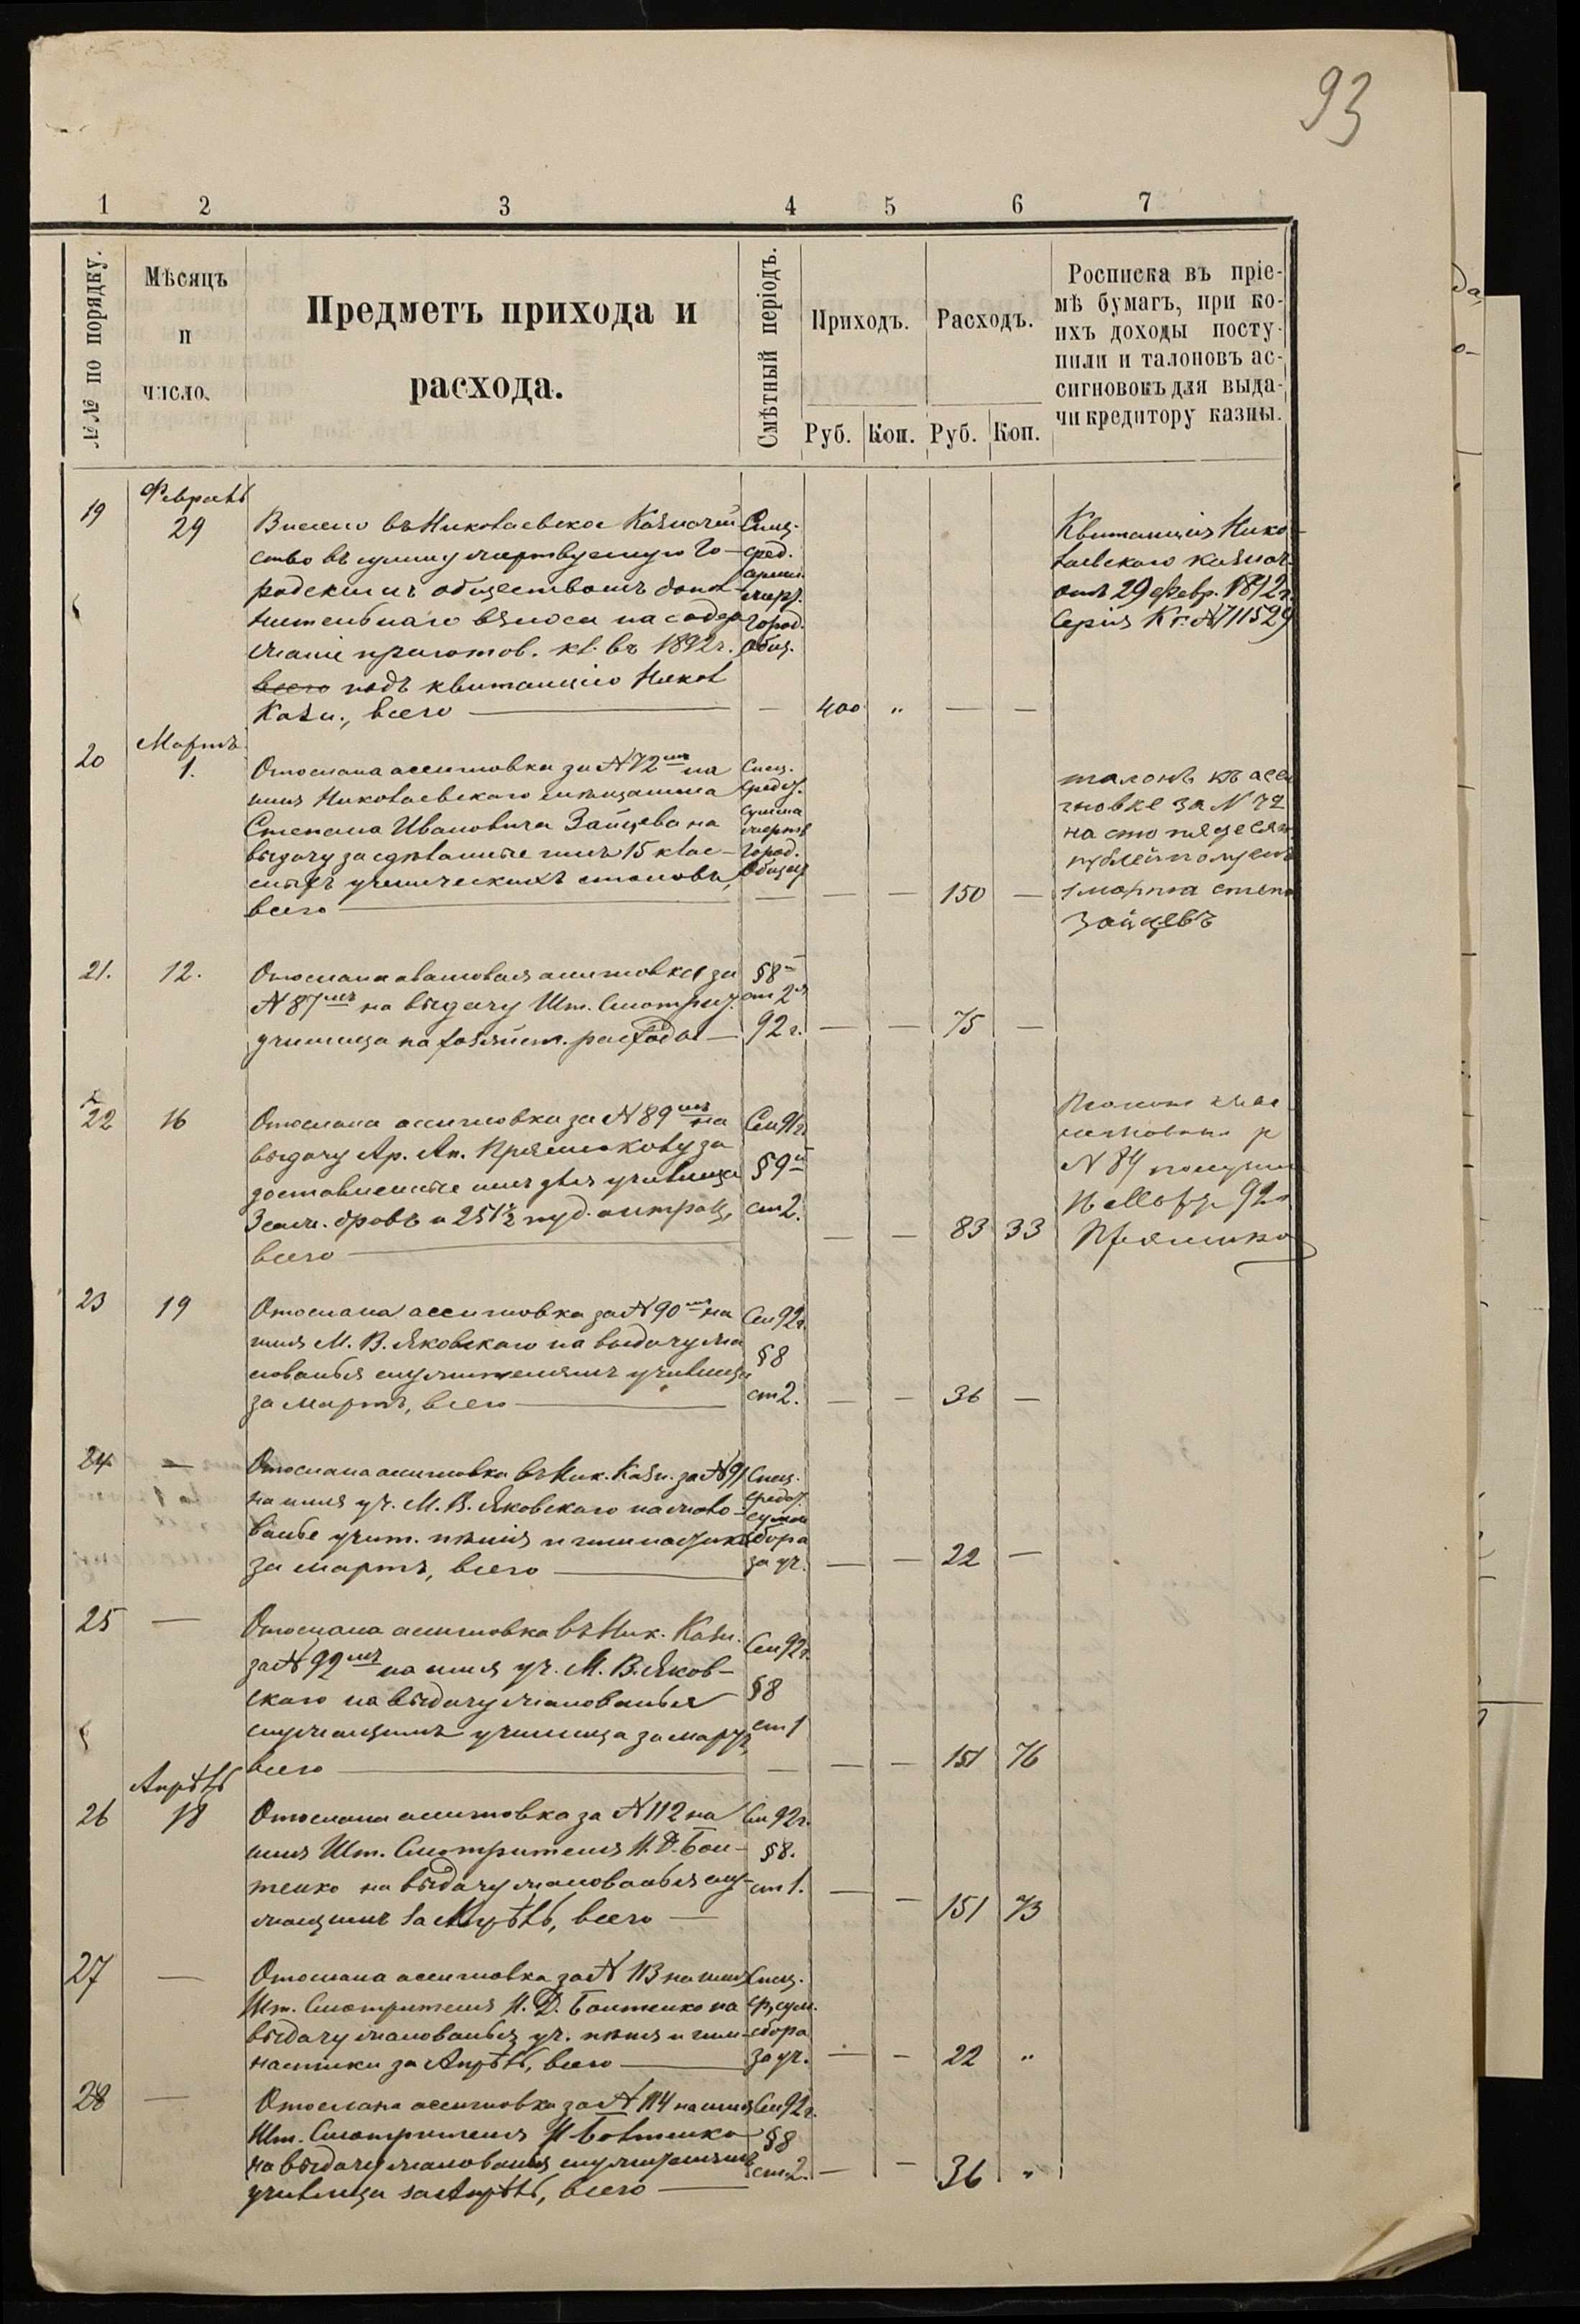 93
1 2 3 4 5 6 7
№№ по порядку.
Мѣсяцъ
и
число.
Предметъ прихода и
расхода.
Смѣтный періодъ.
Приходъ.
Расходъ.
Руб. Коп. Руб. Коп.
Росписка въ пріе-
мѣ бумагъ, при ко-
ихъ доходы посту-
пили и талоновъ ас-
сигновокъ для выда-
чи кредитору казны.
Февраль
19 29 Внесено въ Николаевское Казначей
ство въ сумму жертвуемую Го-
родскимъ обществомъ допол-
нительнаго взноса на содер
жаніе приготов. кл. въ 1892 г.
всего подъ квитанцію Никол
Казн., всего — — 400 „ — —
Спец.
сред.
сумм.
жерт.
город.
общ.
Квитанція Нико-
лаевскаго казнач.
отъ 29 февр. 1892 г.
Серія К г. № 711529
Мартъ
20 1. Отослана ассигновка за № 72мъ на
имя Николаевскаго мѣщанина
Степана Ивановича Зайцева на
выдачу за сдѣланные имъ 15 клас-
сныхъ ученическихъ столовъ,
всего — — — — 150 —
Спец.
средст.
сумма
жертв
город.
общест
талонъ къ асси
гновке за N 72
на сто пядесят
рублей получилъ
1 марта степа
Зайцевъ
21. 12. Отослана авансовая ассигновка за
№ 87мъ на выдачу Шт. Смотрит.
училища на хозяйст. расходы — — — 75 —
§ 8
ст 2
92 г.
22 16 Отослана ассигновка за № 89мъ на
выдачу Ар. Ан. Прямикову за
доставленные имъ для училища
3 саж. дровъ и 25 1/2 пуд. антрац,
всего — — — 83 33
См 91 г.
§ 9
ст 2.
N 89 получил
16 Мар 92 г
23 19 Отослана ассигновка за № 90мъ на
имя М. В. Яковскаго на выдачу жа
лованья служителямъ училища
за Мартъ, всего — — — 36 —
См 92 г.
§ 8
ст 2.
24 — Отослана ассигновка въ Ник. Казн. за № 91
на имя уч. М. В. Яковскаго на жало-
ванье учит. пѣнія и гимнастики
за мартъ, всего — — — 22 —
Спец.
средст.
сумм
сбора
за уч.
25 — Отослана ассигновка въ Ник. Казн.
за № 92мъ на имя уч. М. В. Яков-
скаго на выдачу жалованья
служащимъ училища за мартъ,
всего — — — — 151 76
См 92 г.
§ 8
ст 1
Апрѣль
26 18 Отослана ассигновка за № 112 на
имя Шт. Смотрителя Н. Д. Бол-
тенко на выдачу жалованья слу-
жащимъ за Апрѣль, всего — — — 151 73
См 92 г.
§ 8.
ст 1.
27 — Отослана ассигновка за № 113 на имя
Шт. Смотрителя Н. Д. Болтенко на
выдачу жалованья уч. пѣнія и гим-
настики за Апрѣль, всего — — — 22 „
Спец.
ср. сум.
сбора
за уч.
28 — Отослана ассигновка за № 114 на имя
Шт. Смотрителя Н Болтенко
на выдачу жалованья служителямъ
училища за Апрѣль, всего — — — 36 „
См 92 г.
§ 8
ст 2.